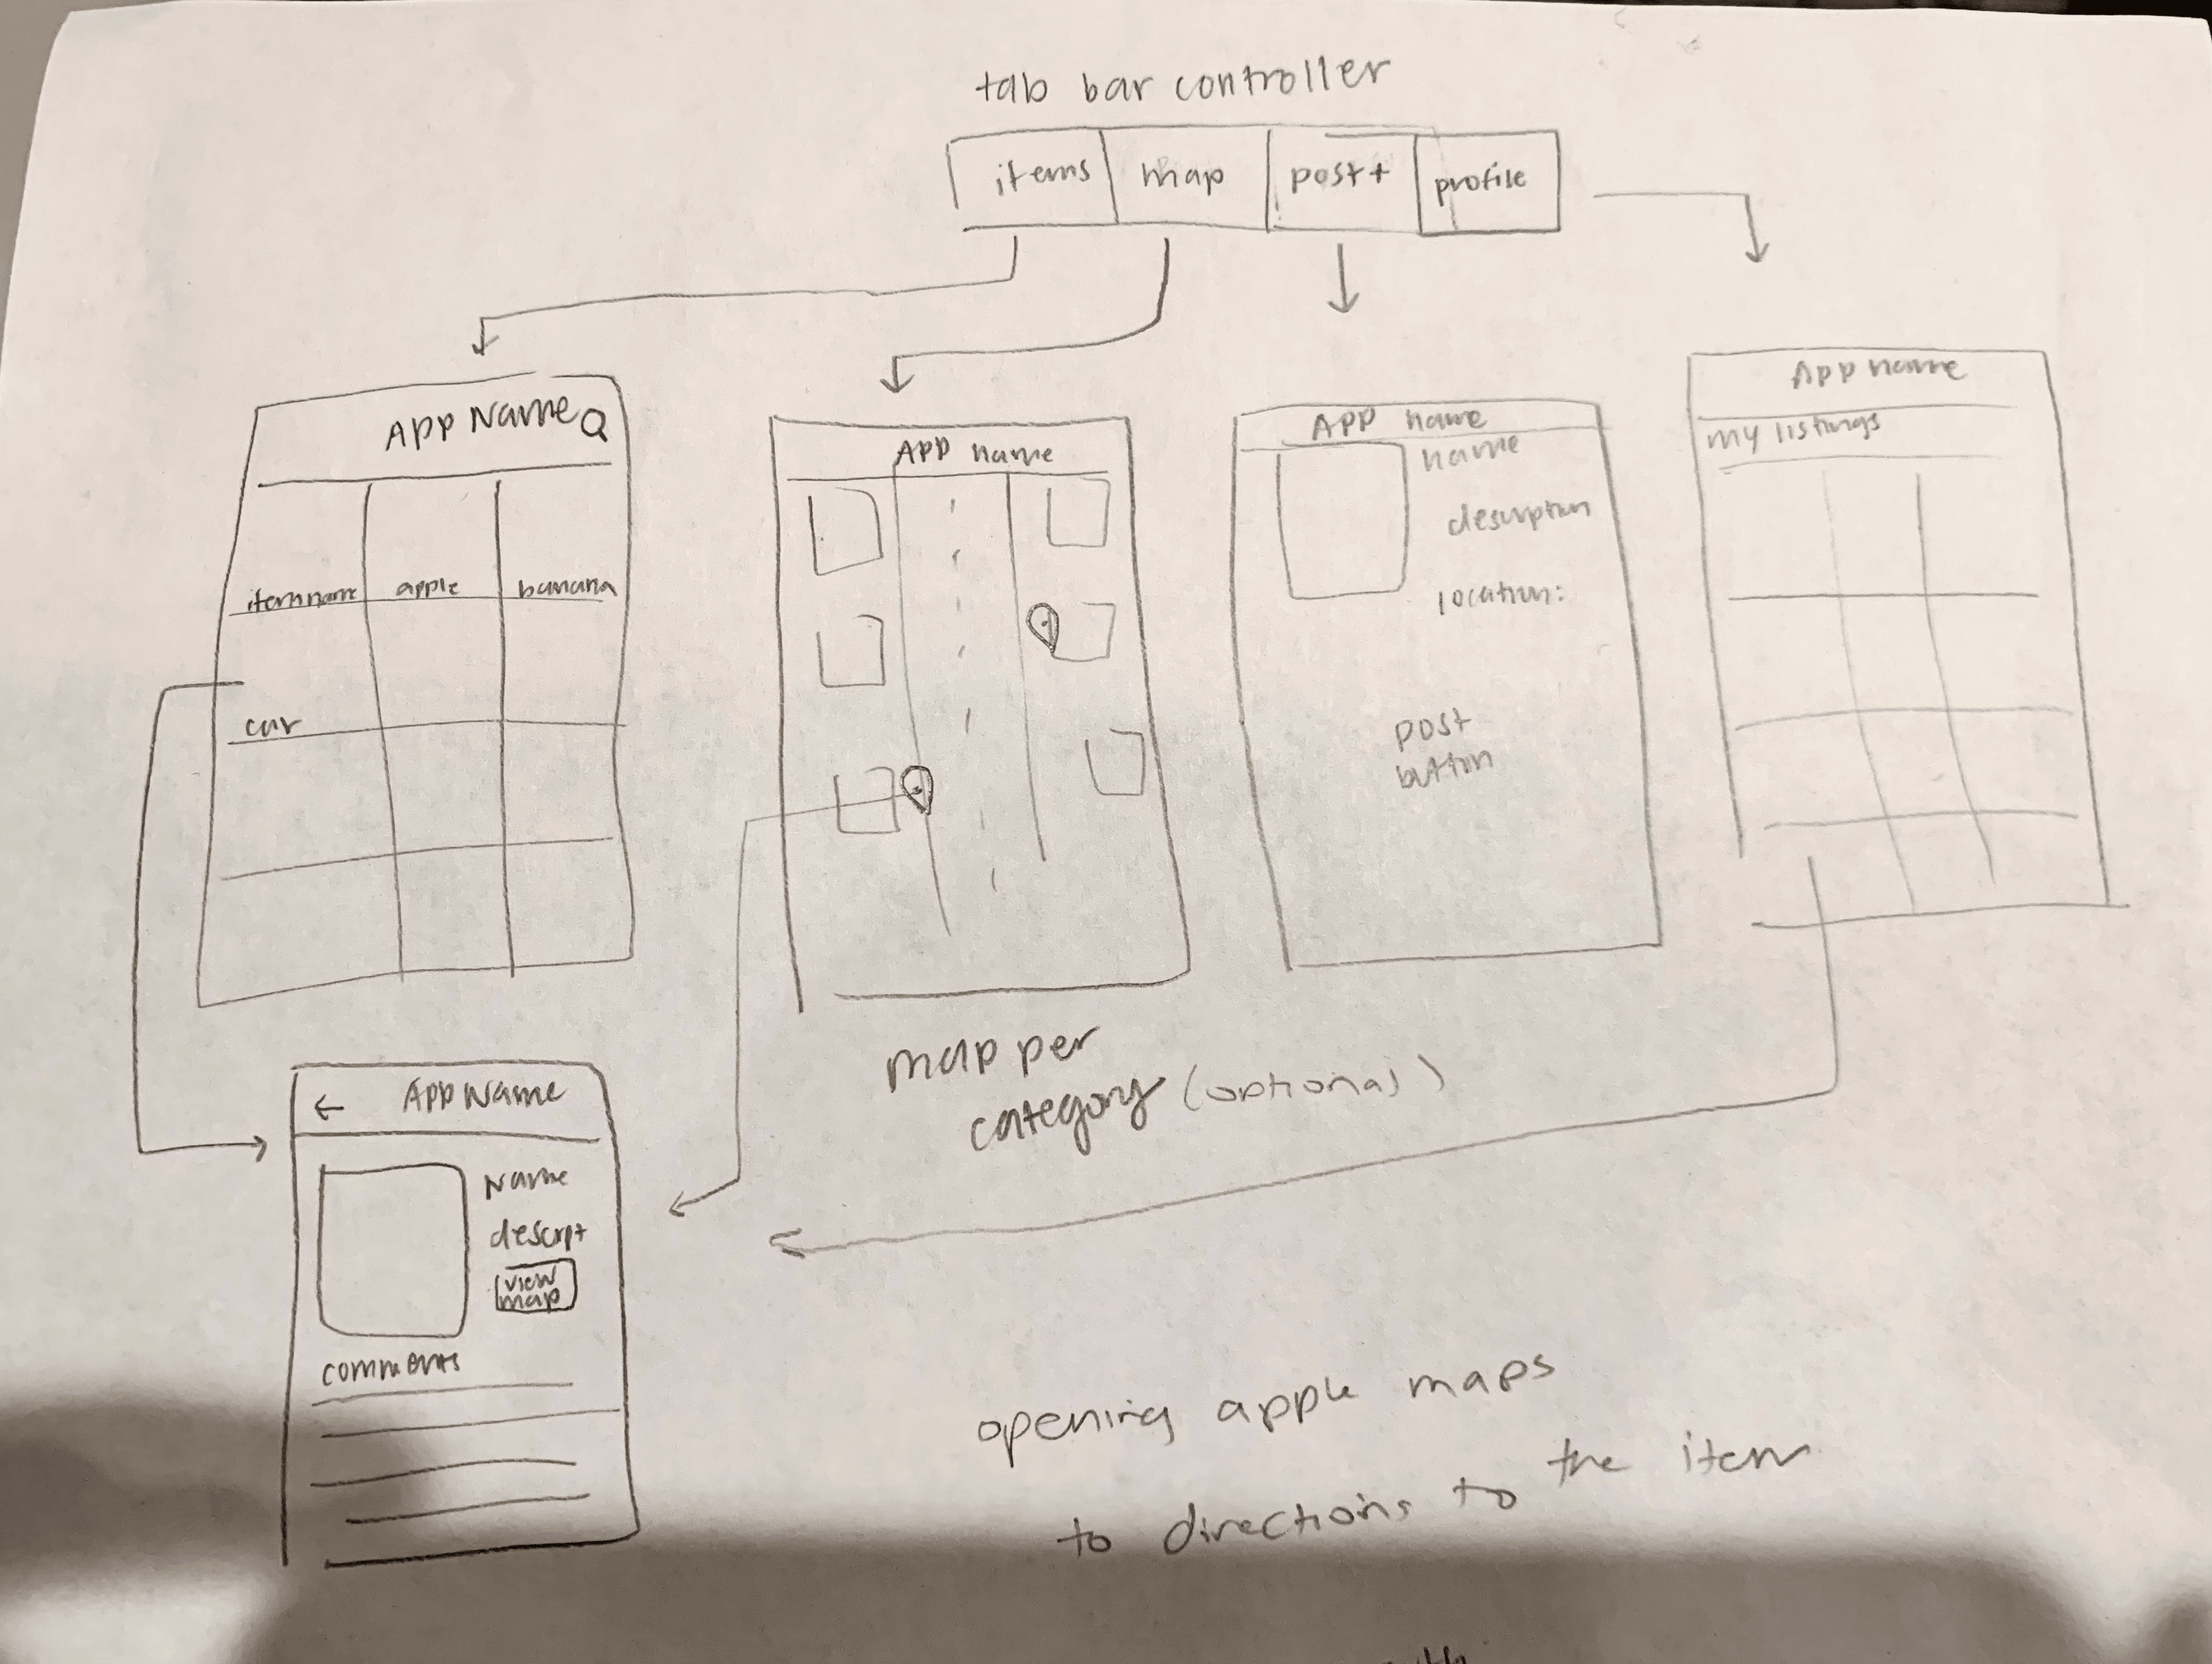 tab bar controller
items map post+ profile
App Name
itemname apple banana
car
App name
App name
name
description
location:
post
button
App name
my listings
map per
category (optional)
← App Name
Name
descript
view
map
comments
opening apple maps
to directions to the item